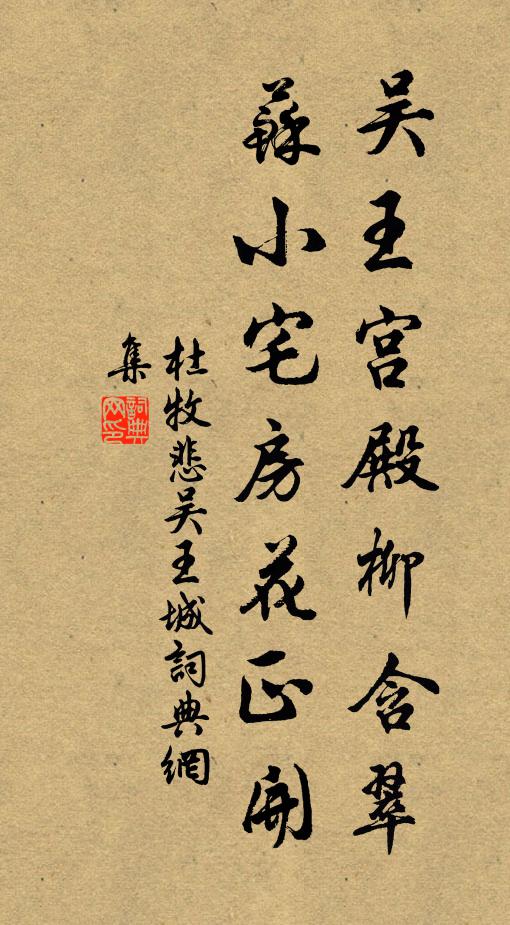 吴王宫殿柳含翠
蘇小宅房花正開
杜牧悲吴王城詞典網
集
詞典
网印